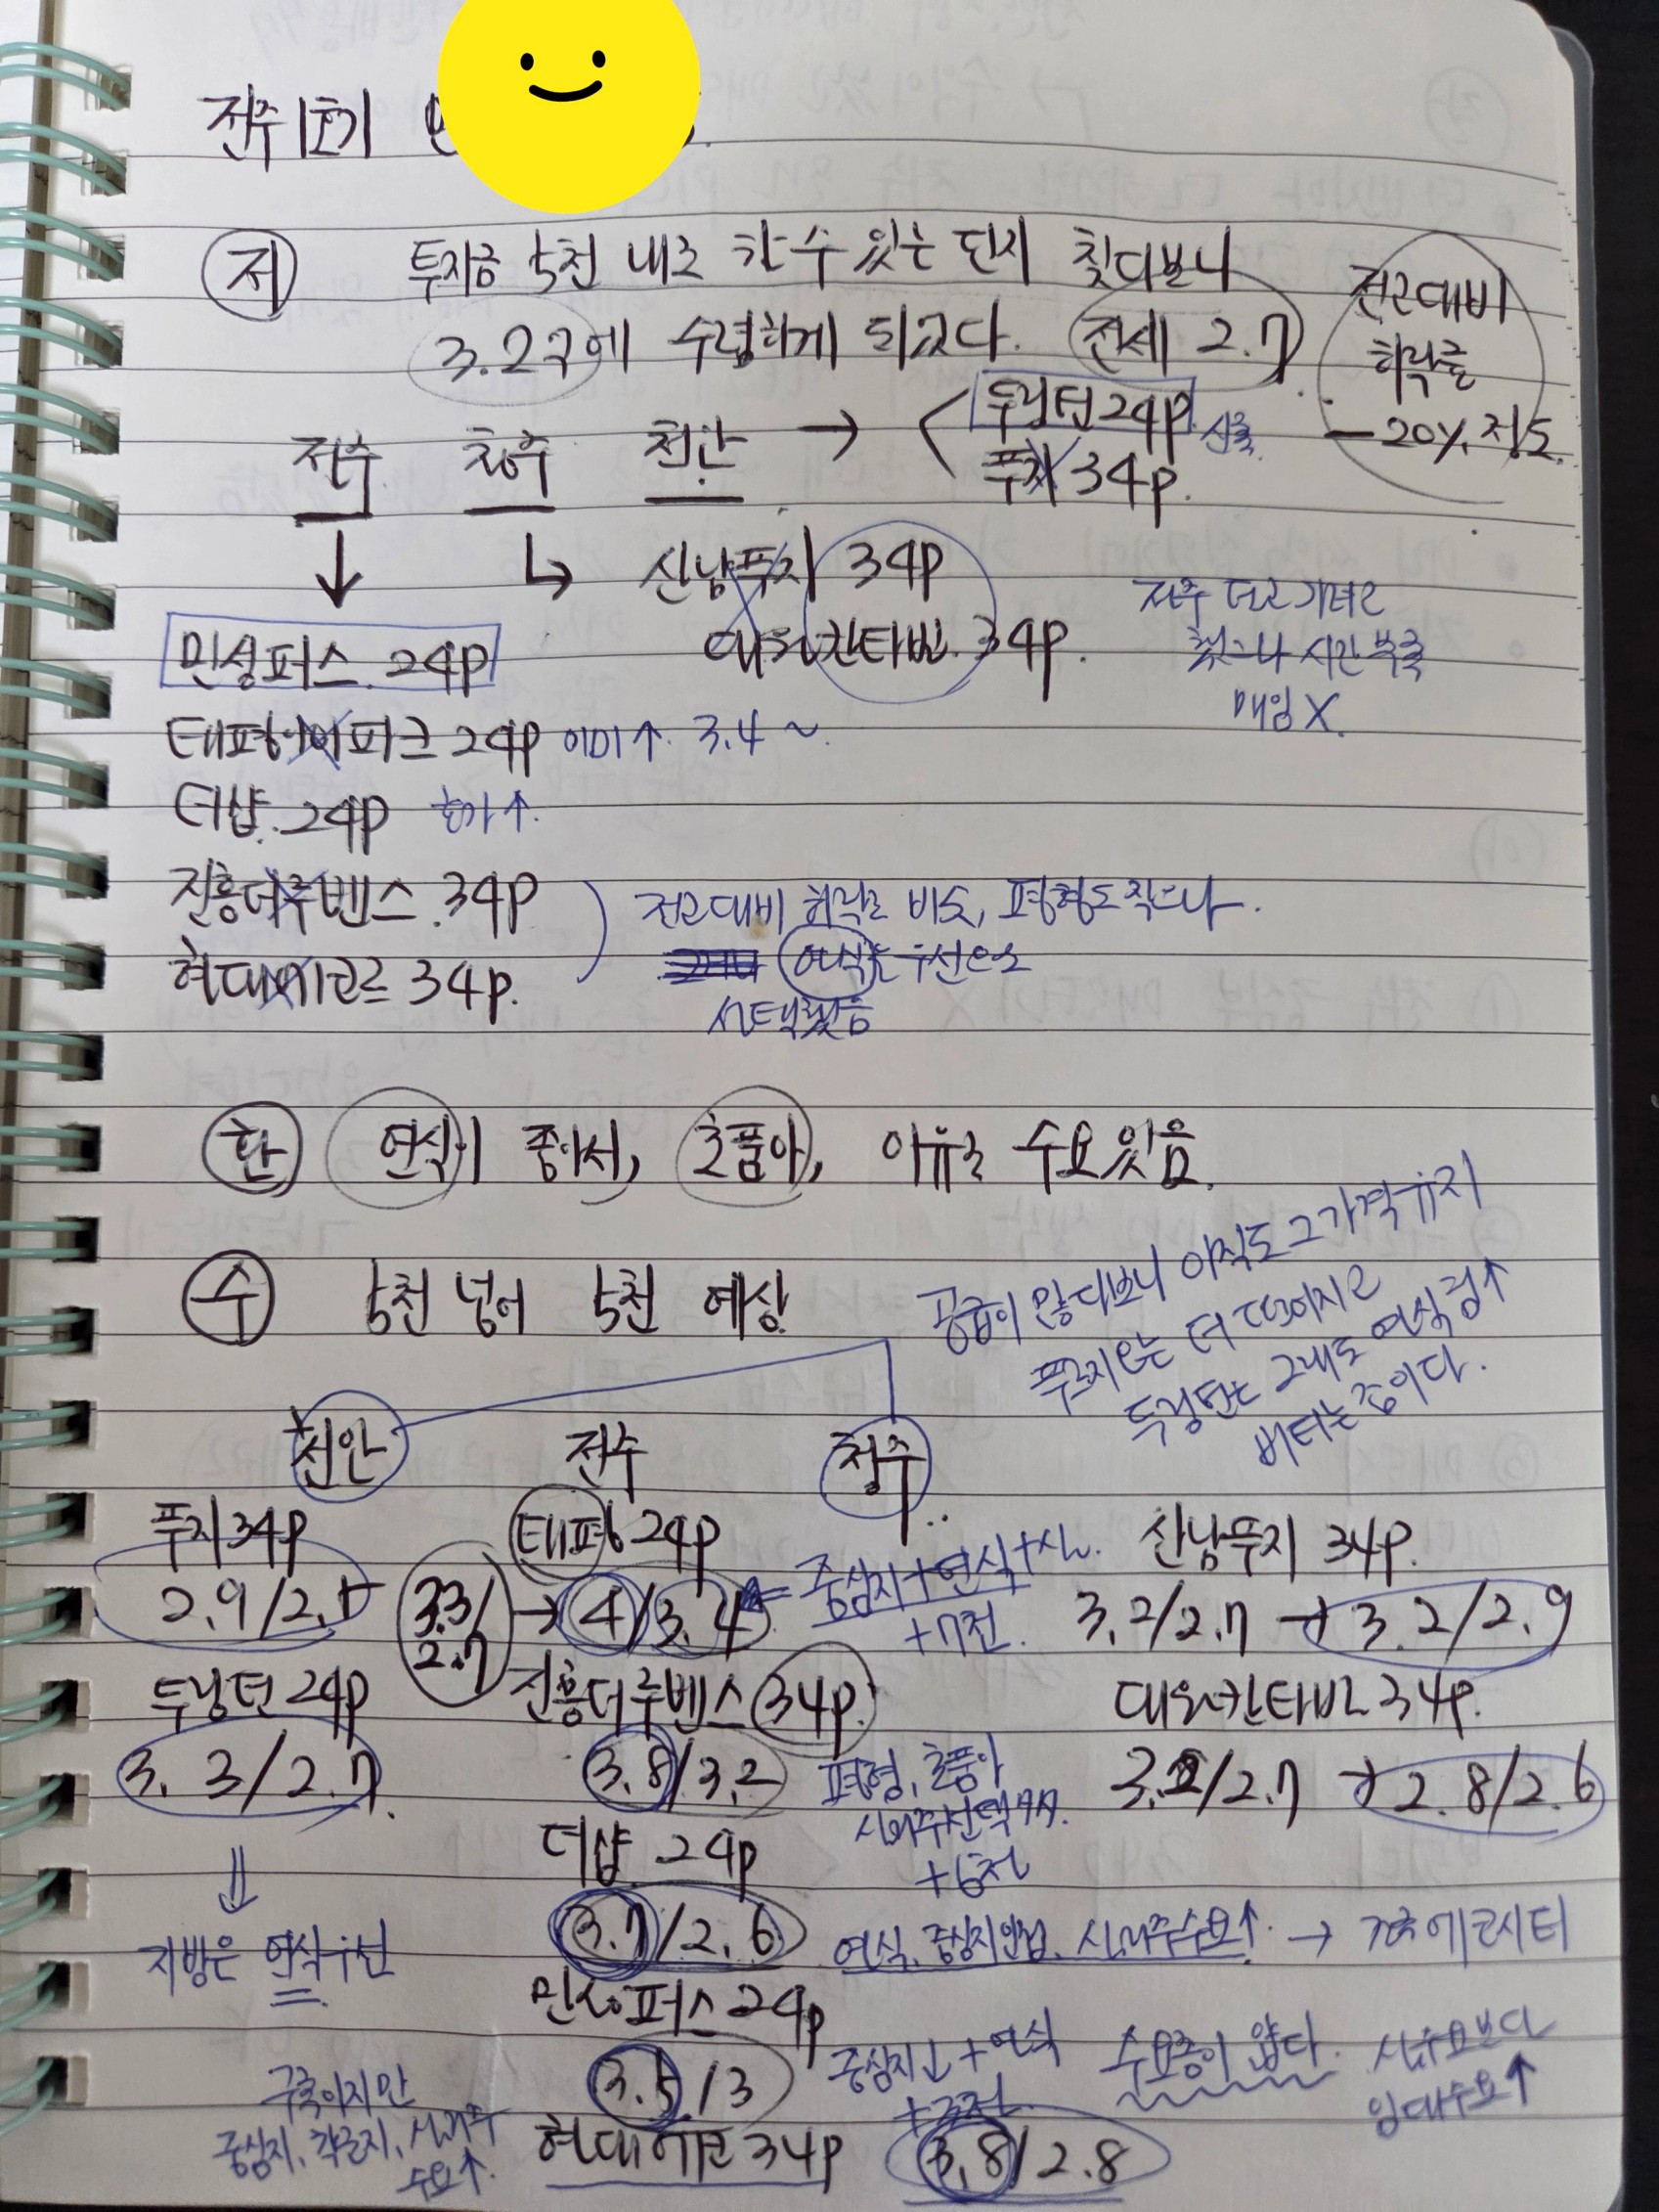 전주 1호기
저 투자금 5천 내로 할 수 있는 단지 찾다보니
3.2구에 수렴하게 되었다. 전세 2.7
전고대비
하락률
-20% 정도.
전주 청주 천안 → < 두정던 24p 신축.
푸지 34p.
↓ ↳ 산남푸지 34p
대원칸타빌. 34p.
전주 더보고 기다리려고
했으나 시간 부족
매임 X.
민성퍼스. 24p
태평아이파크 24p 이미↑. 3.4 ~.
더샵. 24p 호가↑.
진흥더루벤스. 34p
현대에코르 34p.
전고대비 하락률 비슷, 평형도 작으나.
연식을 우선으로
선택했음
환 연식이 좋아서, 초품아, 이유로 수요있음.
수 5천 넣어 5천 예상
공급이 많다보니 아직도 그 가격 유지
푸르지오는 더 떨어지고
두정던은 그래도 연식 덕↑
버티는 중이다.
천안 전주 청주..
푸지 34p 태평 24p 산남푸지 34p.
2.9/2.5 3.3/2.7 → 4/3.4 = 중심지+연식+신.
+7천.
3.2/2.7 → 3.2/2.9
두정던 24p 진흥더루벤스 34p. 대원칸타빌 34p.
3.3/2.7. 3.8/3.2 평형, 초품아
실거주선택 가능.
+6천
3.2/2.7 → 2.8/2.6
더샵. 24p
⇓ 3.7/2.6 연식, 중심지인접. 실거주수요↑. → 기축에코시티
지방은 연식우선
민성퍼스 24p
3.5/3 중심지↓+연식
+3천.
수요층이 얇다. 실수요보다
임대수요↑
구축이지만
중심지, 학군지, 실거주
수요↑.
현대에코 34p 3.8/2.8